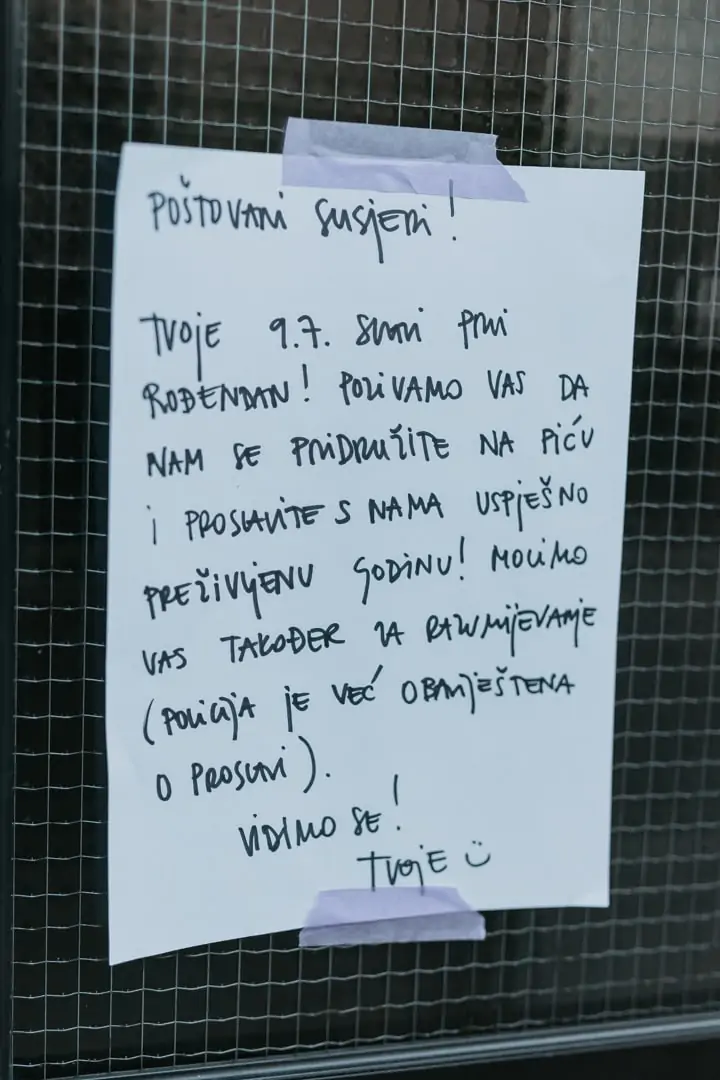 POŠTOVANI SUSJEDI!
TVOJE 9.7. SLAVI PRVI
ROĐENDAN! POZIVAMO VAS DA
NAM SE PRIDRUŽITE NA PIĆU
I PROSLAVITE S NAMA USPJEŠNO
PREŽIVLJENU GODINU! MOLIMO
VAS TAKOĐER ZA RAZUMIJEVANJE
(POLICIJA JE VEĆ OBAVJEŠTENA
O PROSLAVI).
VIDIMO SE!
TVOJE ü